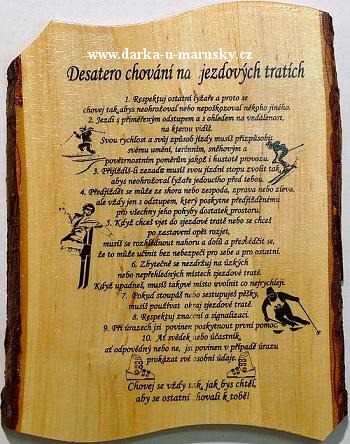 www.darka-u-marusky.cz
Desatero chování na jezdových tratích
1. Respektuj ostatní lyžaře a proto se
chovej tak,abys neohrožoval nebo nepoškozoval někoho jiného.
2. Jezdi s přiměřeným odstupem a s ohledem na vzdálenost,
na kterou vidíš.
Svou rychlost a svůj způsob jízdy musíš přizpůsobit
svému umění, terénním, sněhovým a
povětrnostním poměrům jakož i hustotě provozu.
3. Přijíždíš-li zezadu musíš svou jízdní stopu zvolit tak,
abys neohrožoval lyžaře jedoucího před tebou.
4. Předjíždět se může ze shora nebo zespoda, zprava nebo zleva,
ale vždy jen s odstupem, který poskytne předjížděnému
pro všechny jeho pohyby dostatek prostoru.
5. Když chceš vjet do sjezdové tratě nebo se chceš
po zastavení opět rozjet,
musíš se rozhlédnout nahoru a dolů a přesvědčit se,
že to může učinit bez nebezpečí pro sebe a pro ostatní.
6. Zbytečně se nezdržuj na úzkých
nebo nepřehledných místech sjezdové tratě.
Když upadneš, musíš takové místo uvolnit co nejrychleji.
7. Pokud stoupáš nebo sestupuješ pěšky,
musíš používat okraj sjezdové tratě.
8. Respektuj značení a signalizaci.
9. Při úrazech jsi povinen poskytnout první pomoc.
10. Ať svědek nebo účastník,
ať odpovědný nebo ne, jsi povinen v případě úrazu
prokázat své osobní údaje.
Chovej se vždy tak, jak bys chtěl,
aby se ostatní chovali k tobě!